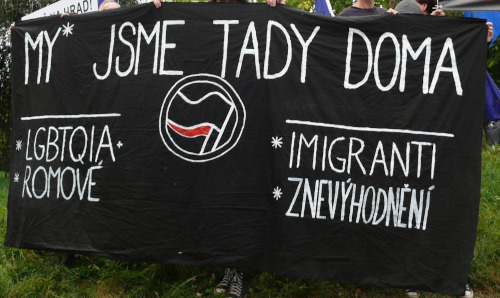 NA HRAD!
MY* JSME TADY DOMA
*LGBTQIA+
*ROMOVÉ
*IMIGRANTI
*ZNEVÝHODNĚNÍ